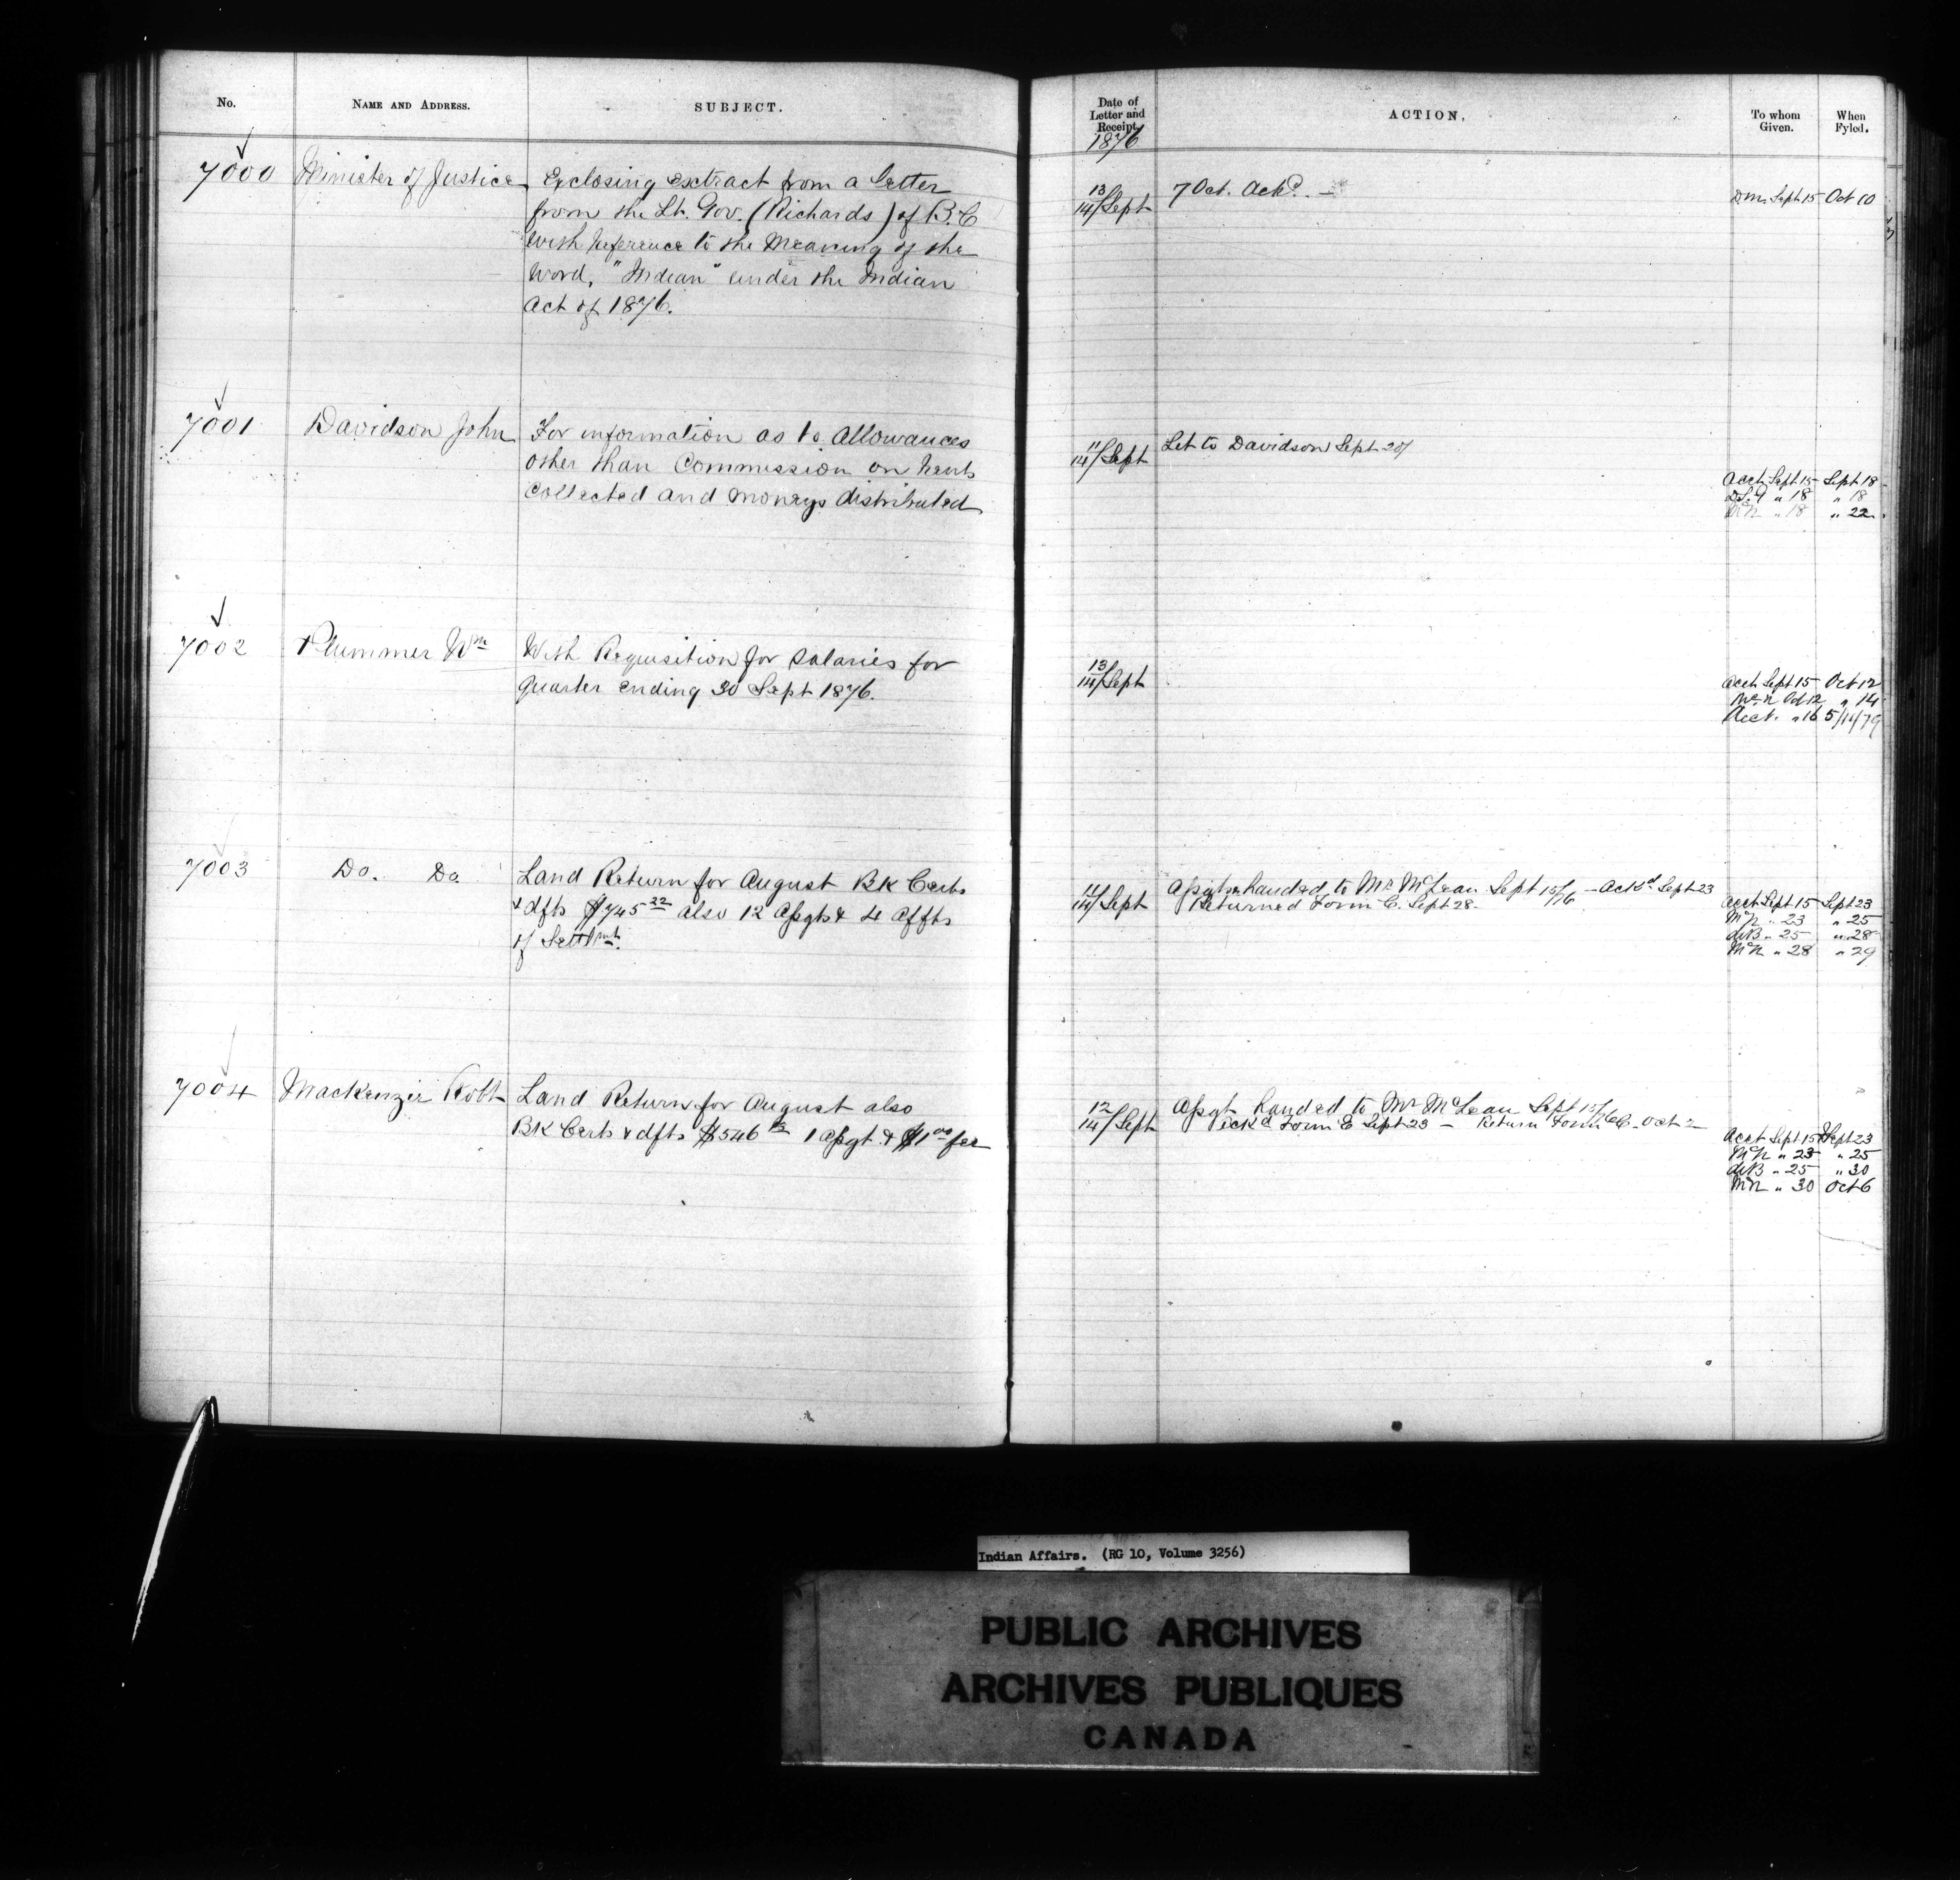 No.
NAME AND ADDRESS.
SUBJECT.
7000
Minister of Justice
Enclosing extract from a letter
from the Lt. Gov. (Richards) of B.C
with reference to the Meaning of the
word, "Indian" under the Indian
Act of 1876.
7001
Davidson John
For information as to Allowances
other than Commission on rents
Collected and moneys distributed
7002
Plummer Wm
With Requisition for Salaries for
Quarter ending 30 Sept 1876.
7003
Do. Do
Land Return for August BK Certs
& dfts $745 22 also 12 Assgts & 4 Affts
of Settlmt.
7004
Mackenzie Robt
Land Return for August also
BK Certs & dfts $546 1 Assgt & $1 00 fee
Date of
Letter and
Receipt.
1876
ACTION.
To whom
Given.
When
Fyled.
13
14/Sept
7 Oct. Ackd.
D.M. Sept 15 Oct 10
11
14/Sept
Let to Davidson Sept 20/
Acct Sept 15 Sept 18
D.S.G " 18 " 18
McN " 18 " 22
13
14/Sept
Acct Sept 15 Oct 12
McN Oct 12 " 14
Acct. " 16 5/11/79
11
14/Sept
Assgts handed to Mr McLean Sept 15/76 - Ackd Sept 23
Returned Form C. Sept 28.
Acct Sept 15 Sept 23
McN " 23 " 25
deB " 25 " 28
McN " 28 " 29
12
14/Sept
Assgt handed to Mr McLean Sept 15/76
Form E Sept 23 - Return Form C. Oct 2
Acct Sept 15 Sept 23
McN " 23 " 25
deB " 25 " 30
McN " 30 Oct 6
Indian Affairs. (RG 10, Volume 3256)
PUBLIC ARCHIVES
ARCHIVES PUBLIQUES
CANADA